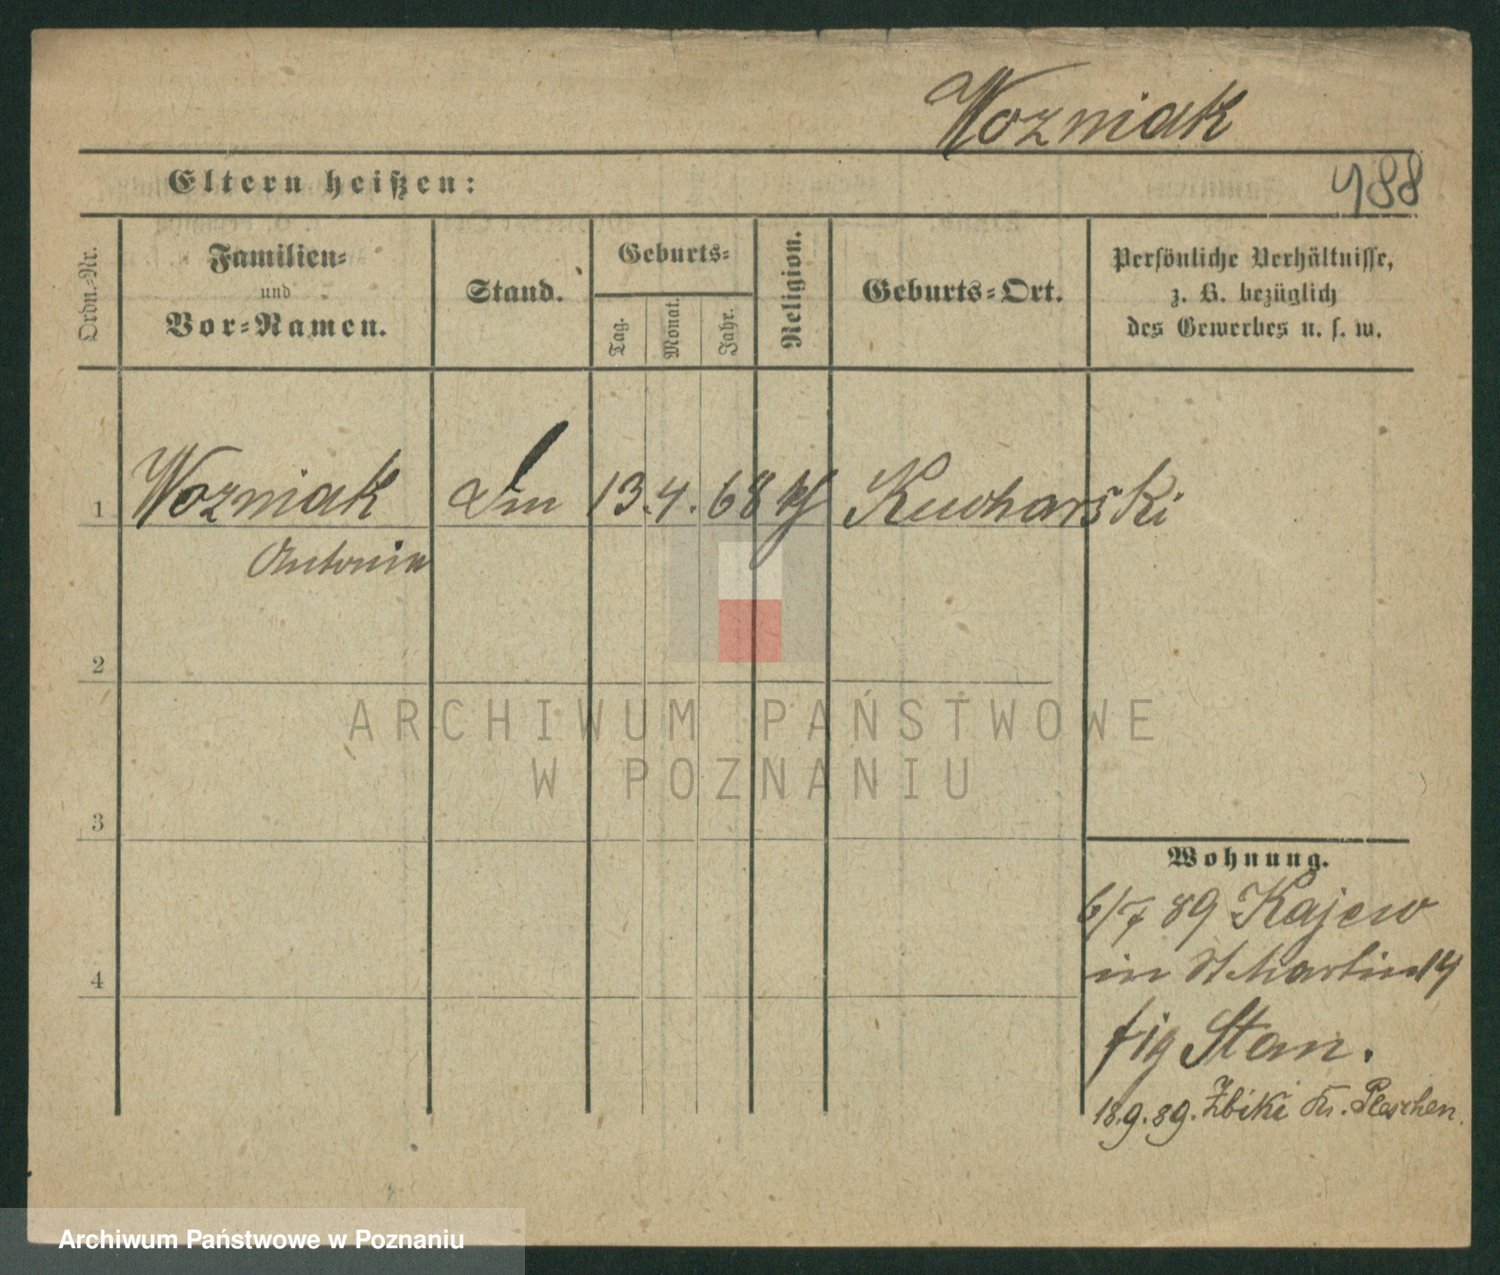 Wozniak
Eltern heißen:
788
Ordn.-Nr.
Familien-
und
Vor-Namen.
Stand.
Geburts-
Tag.
Monat.
Jahr.
Religion.
Geburts-Ort.
Persönliche Verhältnisse,
z. B. bezüglich
des Gewerbes u. s. w.
1 Wozniak 13. 4. 68 Kucharski
Antonia
2
ARCHIWUM PAŃSTWOWE
W POZNANIU
3
Wohnung.
6/7 89 Kajew
in St Martin 14
4
Stan.
18.9.89. Zbiki Kr. Pleschen.
Archiwum Państwowe w Poznaniu